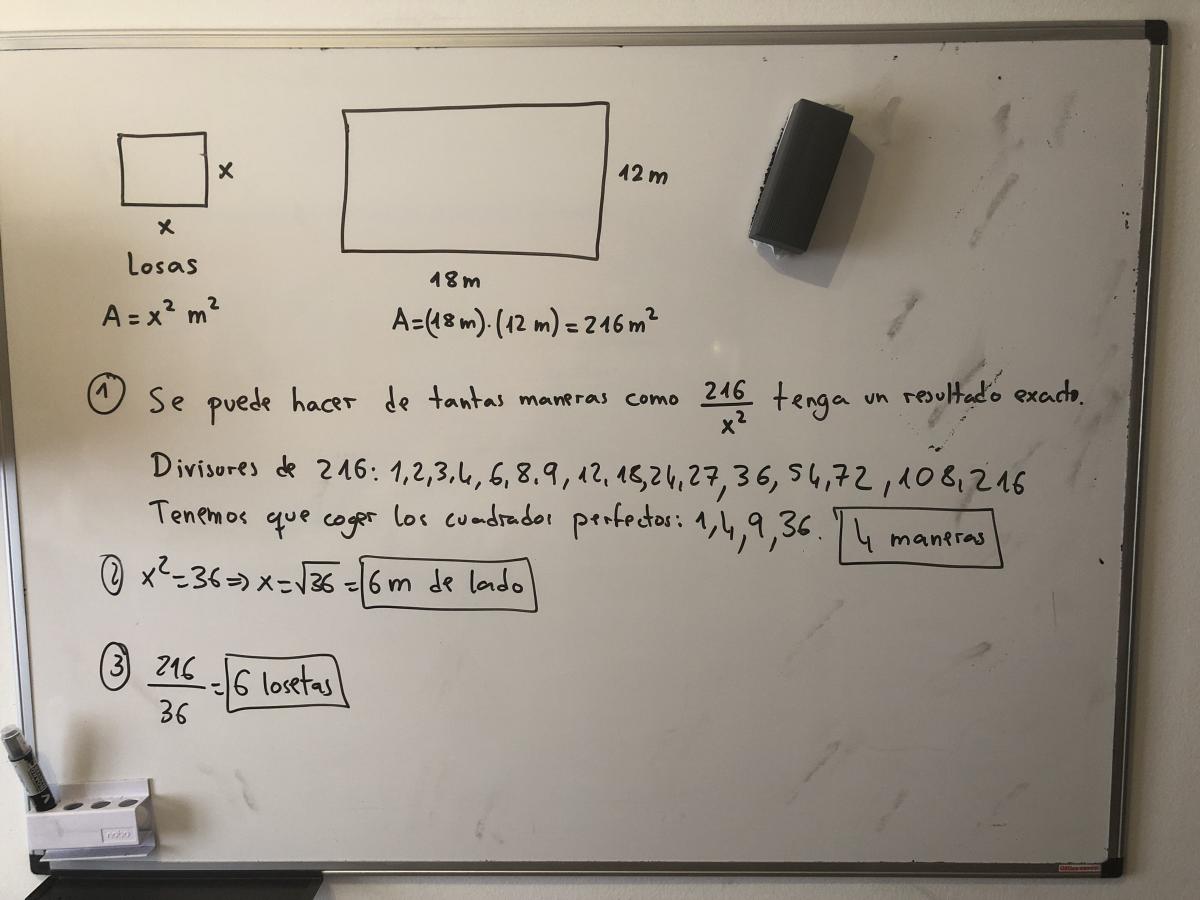 x
12 m
x
Losas
18 m
A = x² m²
A = (18 m) · (12 m) = 216 m²
① Se puede hacer de tantas maneras como 216/x² tenga un resultado exacto.
Divisores de 216: 1, 2, 3, 4, 6, 8, 9, 12, 18, 24, 27, 36, 54, 72, 108, 216
Tenemos que coger los cuadrados perfectos: 1, 4, 9, 36. 4 maneras
② x² = 36 ⇒ x = √36 = 6 m de lado
③ 216/36 = 6 losetas
nobo